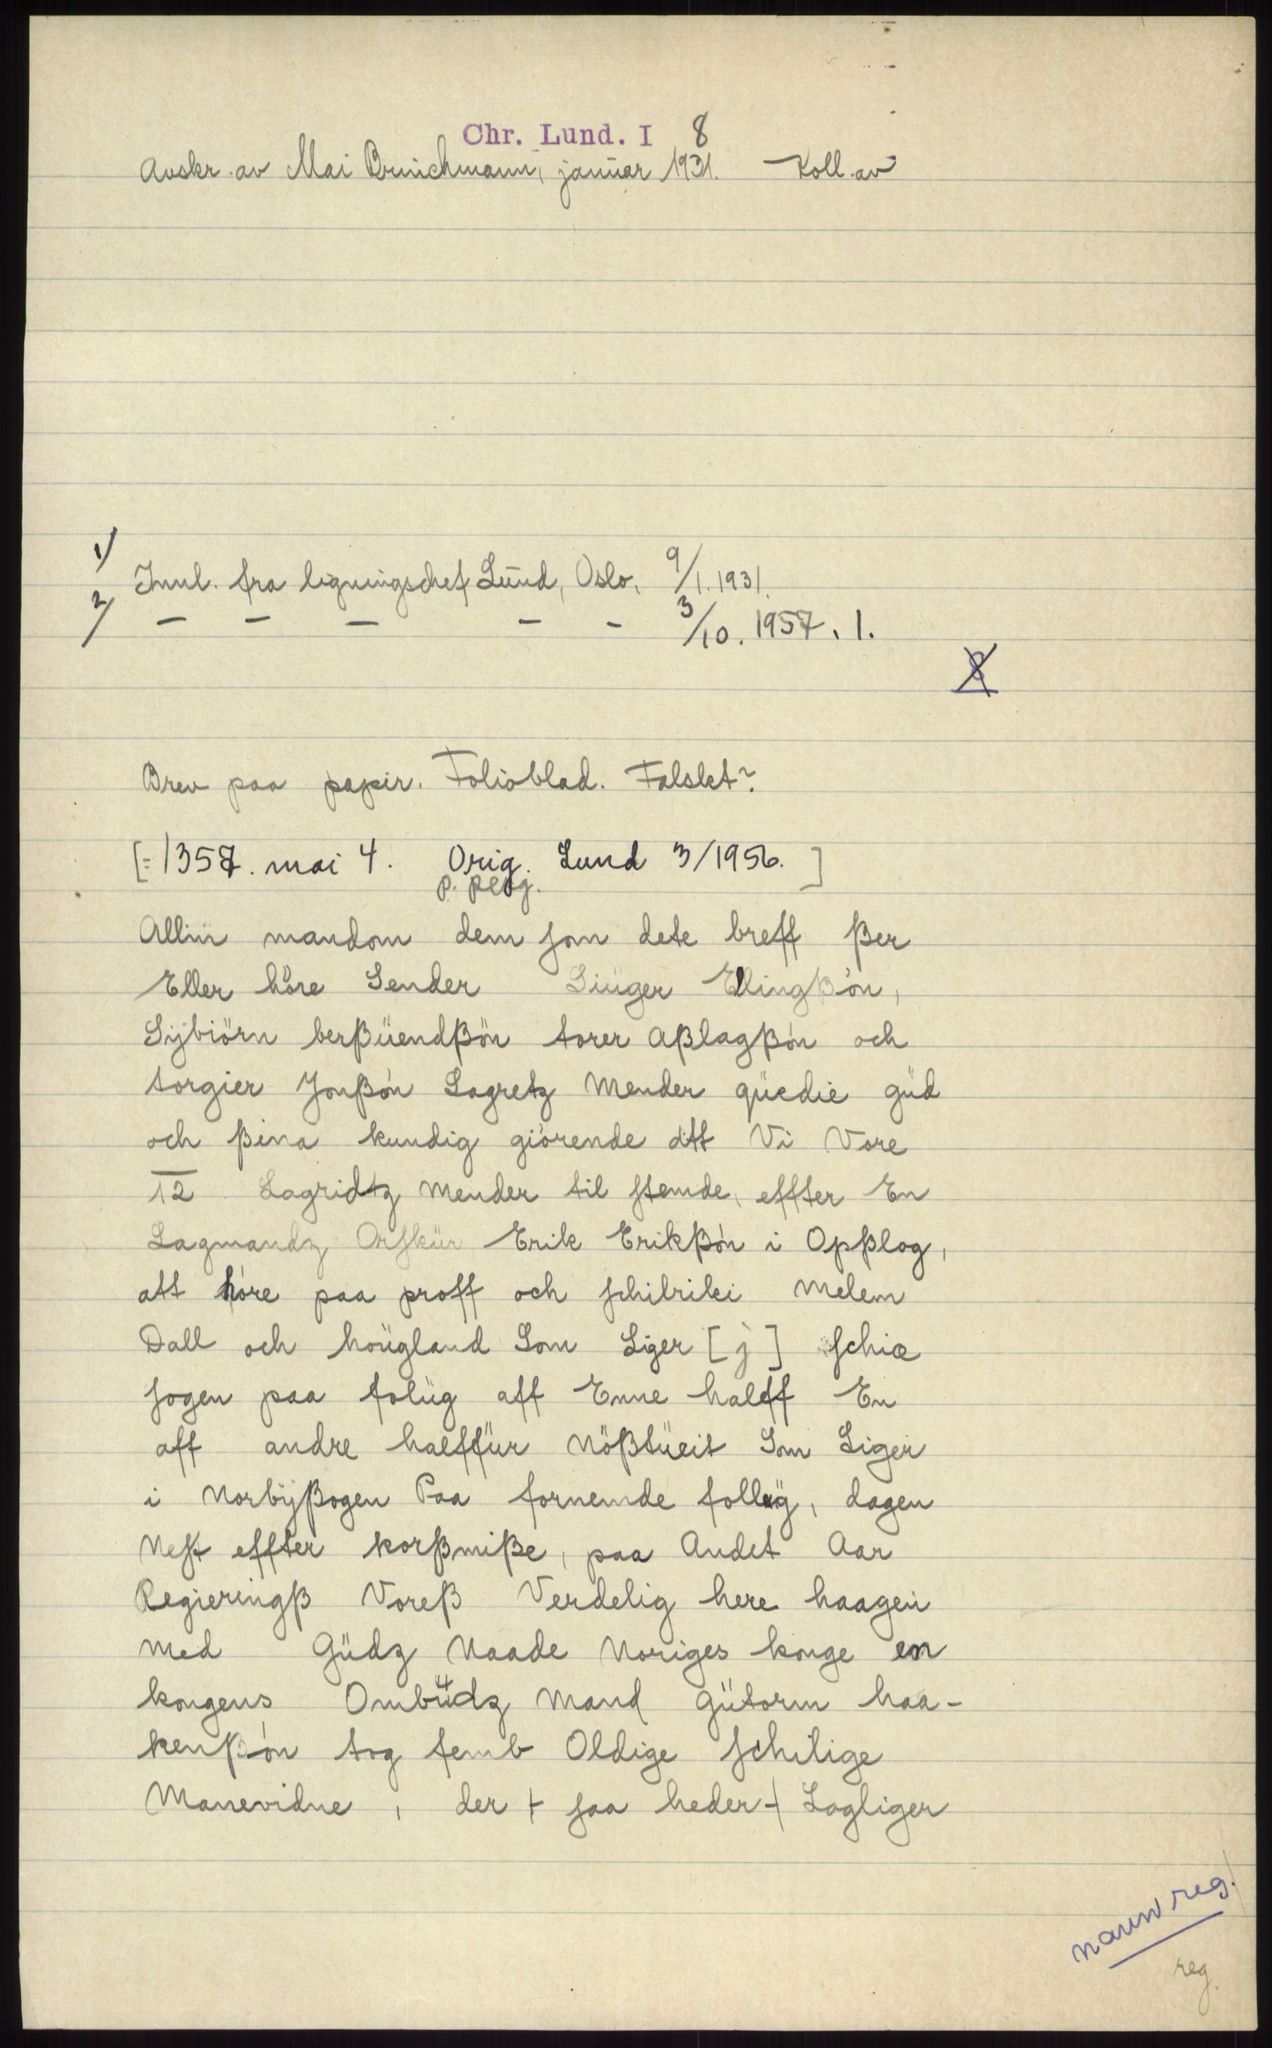 Chr. Lund. I 8
Avskr. av Mai Brinichmann, januar 1931. Koll. av
1/ Innl. fra ligningschef Lund, Oslo, 9/1. 1931.
2/ — — — — — 3/10. 1957. 1.
Brev paa papir. Folioblad. Falsket?
[= 1357. mai 4. Orig. Lund 3/1956. ]
p. perg.
Allin mandom dem som dete breff ßer
Eller høre Sender Siuger EllingßØn,
Sÿbiörn berßüendßön torer Aßlagßön och
torgier Jonßön Lagretz Mender qüedie güd
och ßina kundig giörende att Vi Vore
12 Lagridtz mender til stemde, effter En
Lagmandz Orskür Erik Erikßön i Opßlog,
att höre paa proff och schilriki melem
Dall och höugland Som Liger [j] schie
sogen paa folüg aff Enne halff En
aff andre halffür Nößtüeit Som Liger
i Norbÿßogen Paa fornemde follüg, dagen
Nest effter korßmiße, paa Andet Aar
Regieringß Voreß Verdelig here haagen
med Güdz Naade Noriges konge en
kongens Ombüdz mand Gütorm haa-
kenßön tog femb Oldige schilige
Manevidne, der + saa heder + Lagliger
navnreg.
reg.